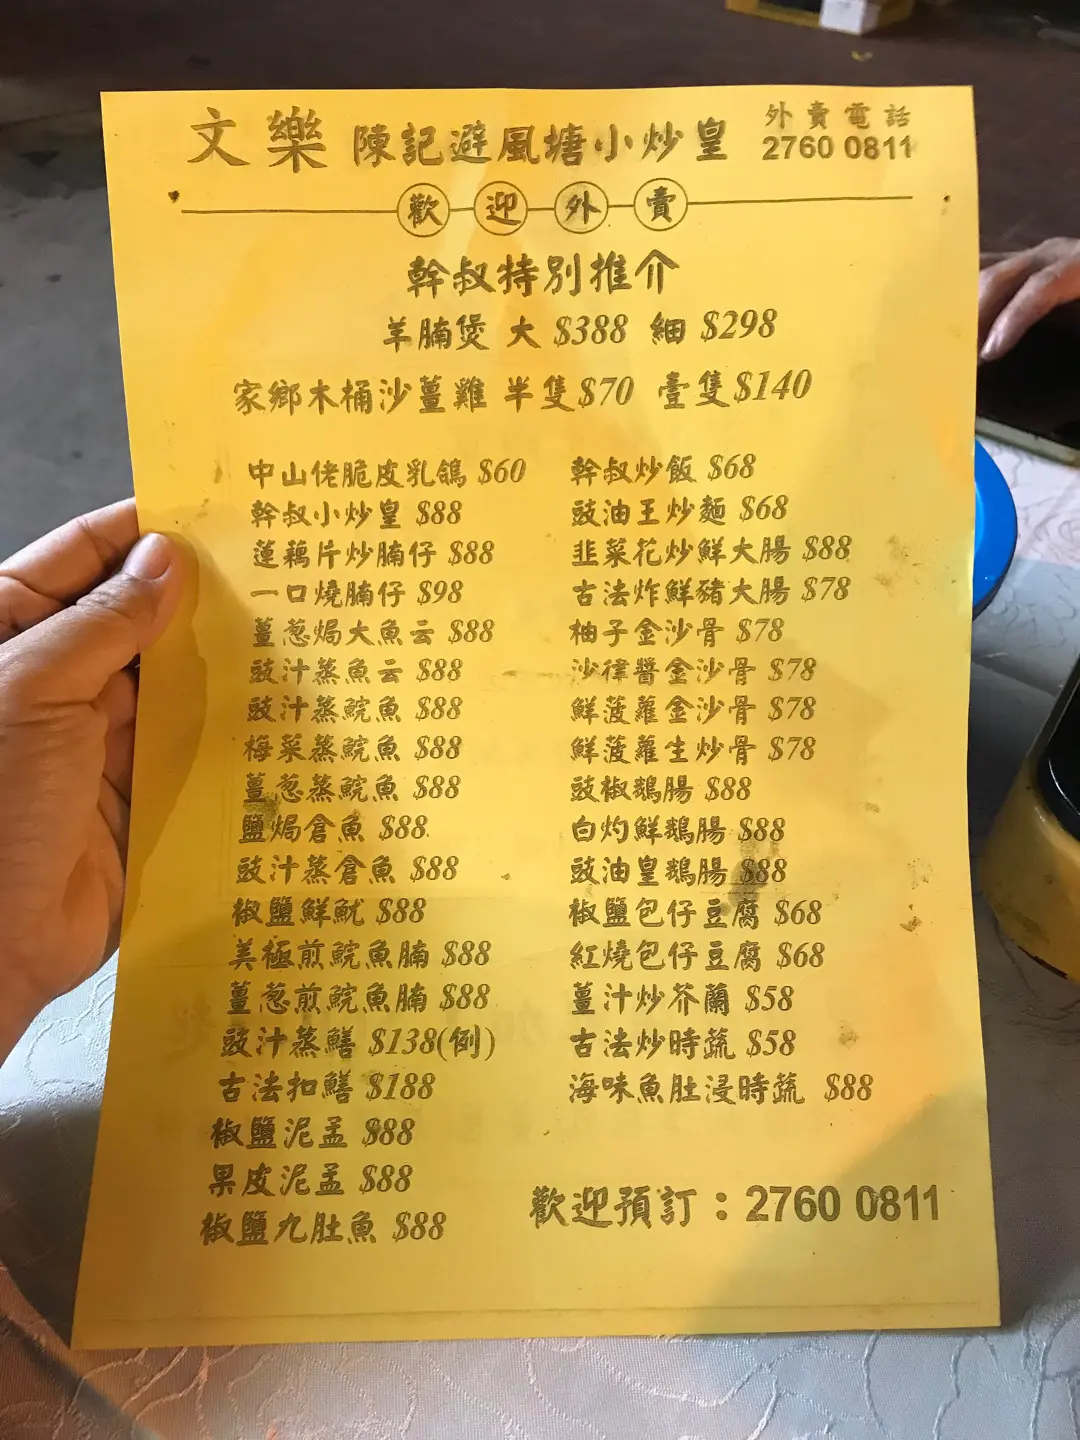 文樂 陳記避風塘小炒皇
外賣電話
2760 0811
歡迎外賣
幹叔特別推介
羊腩煲 大 $388 細 $298
家鄉木桶沙薑雞 半隻$70 壹隻$140
中山佬脆皮乳鴿 $60
幹叔小炒皇 $88
蓮藕片炒腩仔 $88
一口燒腩仔 $98
薑葱焗大魚云 $88
豉汁蒸魚云 $88
豉汁蒸鯇魚 $88
梅菜蒸鯇魚 $88
薑葱蒸鯇魚 $88
鹽焗倉魚 $88
豉汁蒸倉魚 $88
椒鹽鮮魷 $88
美極煎鯇魚腩 $88
薑葱煎鯇魚腩 $88
豉汁蒸鱔 $138(例)
古法扣鱔 $188
椒鹽泥孟 $88
果皮泥孟 $88
椒鹽九肚魚 $88
幹叔炒飯 $68
豉油王炒麵 $68
韭菜花炒鮮大腸 $88
古法炸鮮豬大腸 $78
柚子金沙骨 $78
沙律醬金沙骨 $78
鮮菠蘿金沙骨 $78
鮮菠蘿生炒骨 $78
豉椒鵝腸 $88
白灼鮮鵝腸 $88
豉油皇鵝腸 $88
椒鹽包仔豆腐 $68
紅燒包仔豆腐 $68
薑汁炒芥蘭 $58
古法炒時蔬 $58
海味魚肚浸時蔬 $88
歡迎預訂：2760 0811